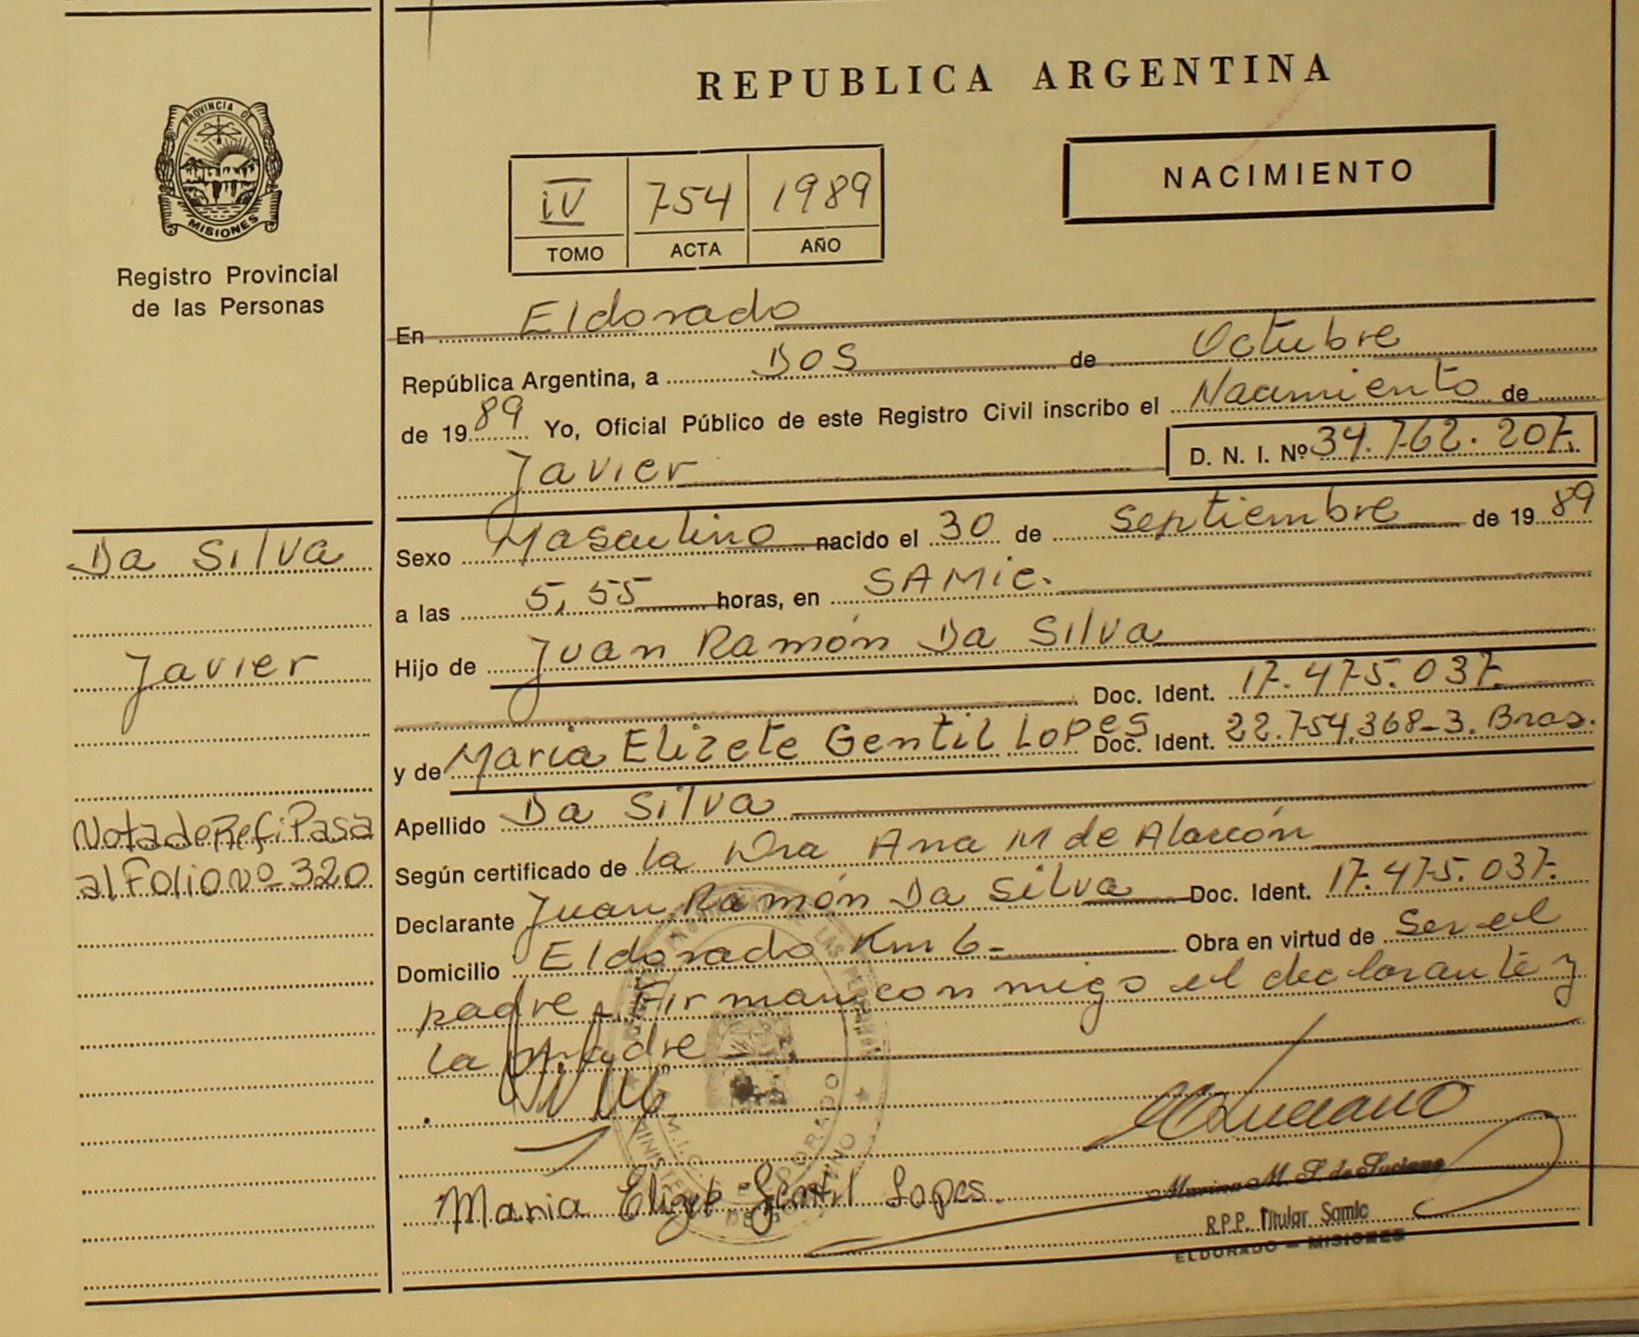 REPUBLICA ARGENTINA
PROVINCIA DE
MISIONES
Registro Provincial
de las Personas
IV 754 1989
TOMO ACTA AÑO
NACIMIENTO
En Eldorado
República Argentina, a Dos de Octubre
de 1989 Yo, Oficial Público de este Registro Civil inscribo el Nacimiento de
Javier D. N. I. Nº 34.762.207.
Da Silva
Javier
Nota de Ref: Pasa
al Folio nº 320
Sexo Masculino nacido el 30 de Septiembre de 1989
a las 5,55 horas, en SAMic.
Hijo de Juan Ramón Da Silva
Doc. Ident. 17.475.037.
y de Maria Elizete Gentil Lopes Doc. Ident. 22.754.368-3. Bras.
Apellido Da Silva
Según certificado de la Dra Ana M de Alarcón
Declarante Juan Ramón Da Silva Doc. Ident. 17.475.037.
Domicilio Eldorado Km 6- Obra en virtud de ser el
padre, Firman conmigo el declarante y
la madre
Maria Elizete Gentil Lopes.
Marina M. S. de Luciano
R.P.P. Titular Samic
ELDORADO - MISIONES